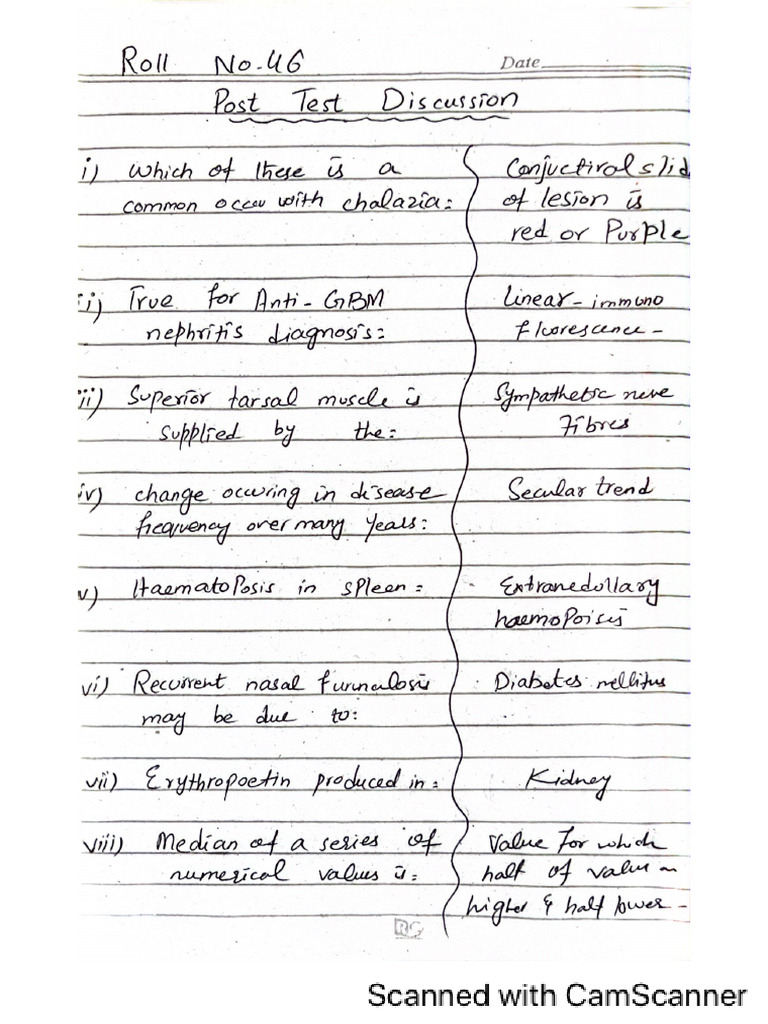 Roll No.46
Date
Post Test Discussion
i) Which of these is a
common occeu with chalazia:
Conjuctival slid
of lesion is
red or Purple
ii) True for Anti-GBM
nephritis diagnosis:
Linear-immuno
fluorescence-
iii) Superior tarsal muscle is
supplied by the:
Sympathetic neve
Fibres
iv) change occuring in disease
frequency over many years:
Secular trend
v) HaematoPosis in spleen:
Extranedullary
haemopoisis
vi) Recurrent nasal furunculosis
may be due to:
Diabetes mellitus
vii) Erythropoetin produced in:
Kidney
viii) Median of a series of
numerical values is:
Value for which
half of value
higher & half lower-
Scanned with CamScanner